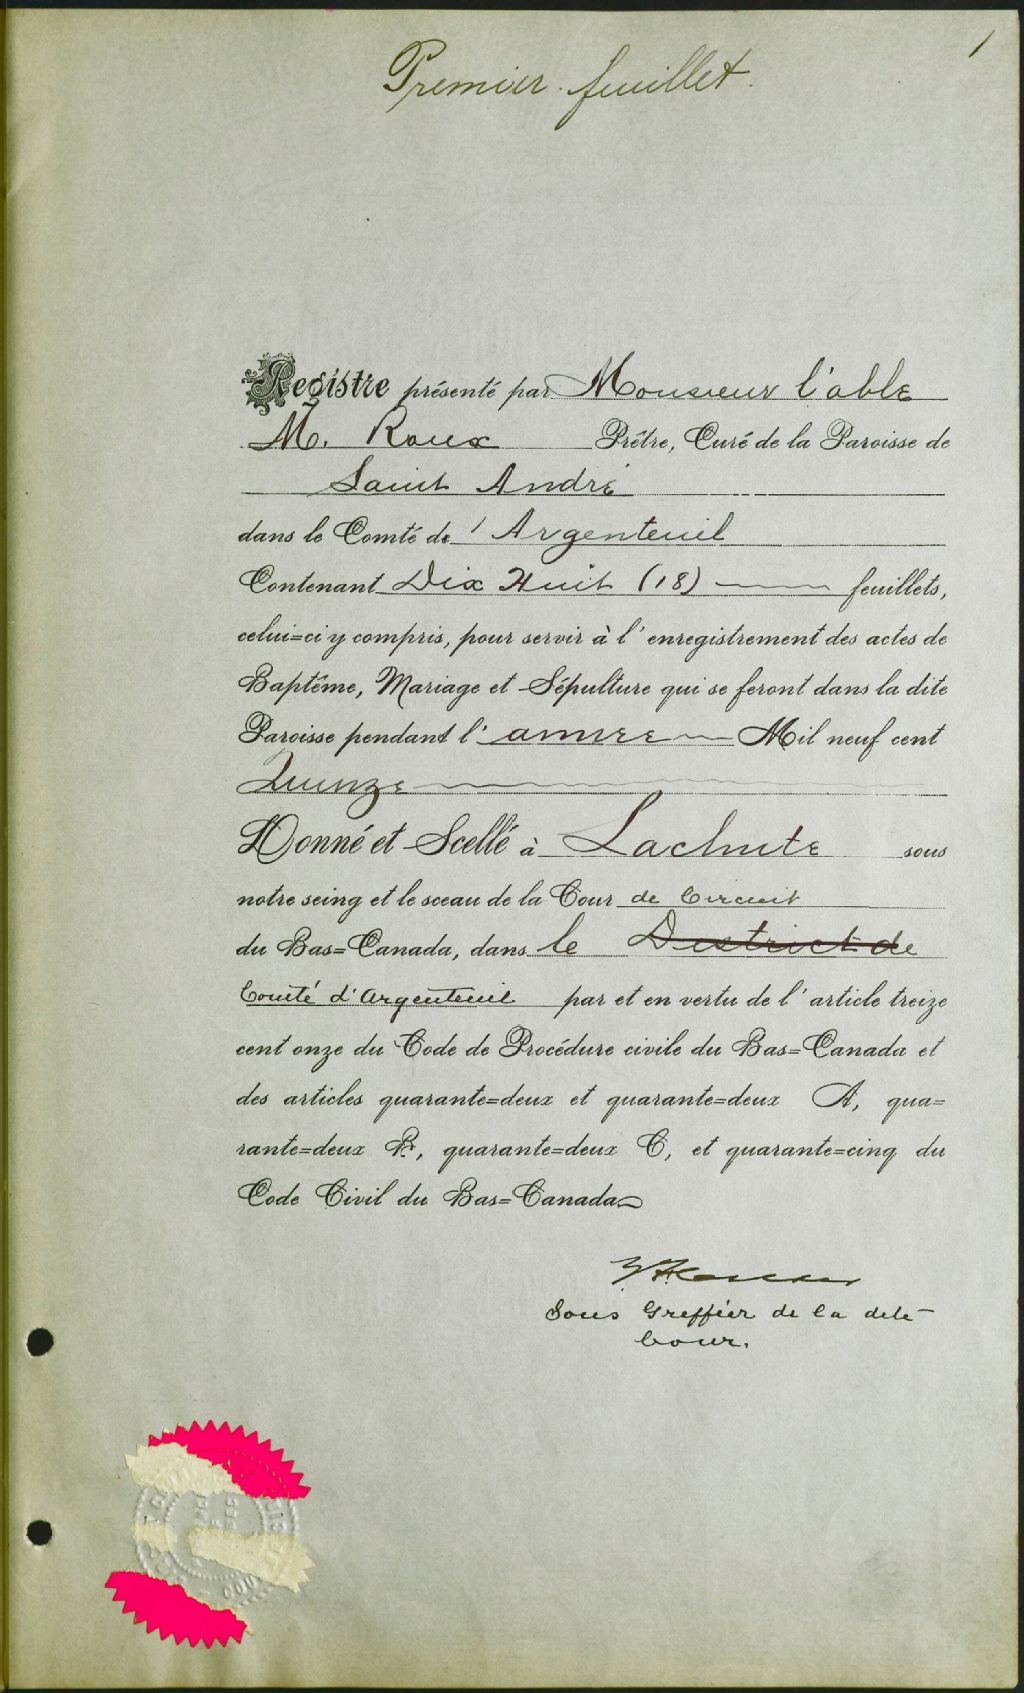 1
Premier feuillet
Registre présenté par Monsieur l'abbé
M. Roux Prêtre, Curé de la Paroisse de
Saint André
dans le Comté de l'Argenteuil
Contenant Dix Huit (18) feuillets,
celui=ci y compris, pour servir à l'enregistrement des actes de
Baptême, Mariage et Sépulture qui se feront dans la dite
Paroisse pendant l'année Mil neuf cent
Quinze
Donné et Scellé à Lachute sous
notre seing et le sceau de la Cour de Circuit
du Bas=Canada, dans le District de
Comté d'Argenteuil par et en vertu de l'article treize
cent onze du Code de Procédure civile du Bas=Canada et
des articles quarante=deux et quarante=deux A, qua=
rante=deux B, quarante=deux C, et quarante=cinq du
Code Civil du Bas=Canada
Sous Greffier de la dite
Cour.